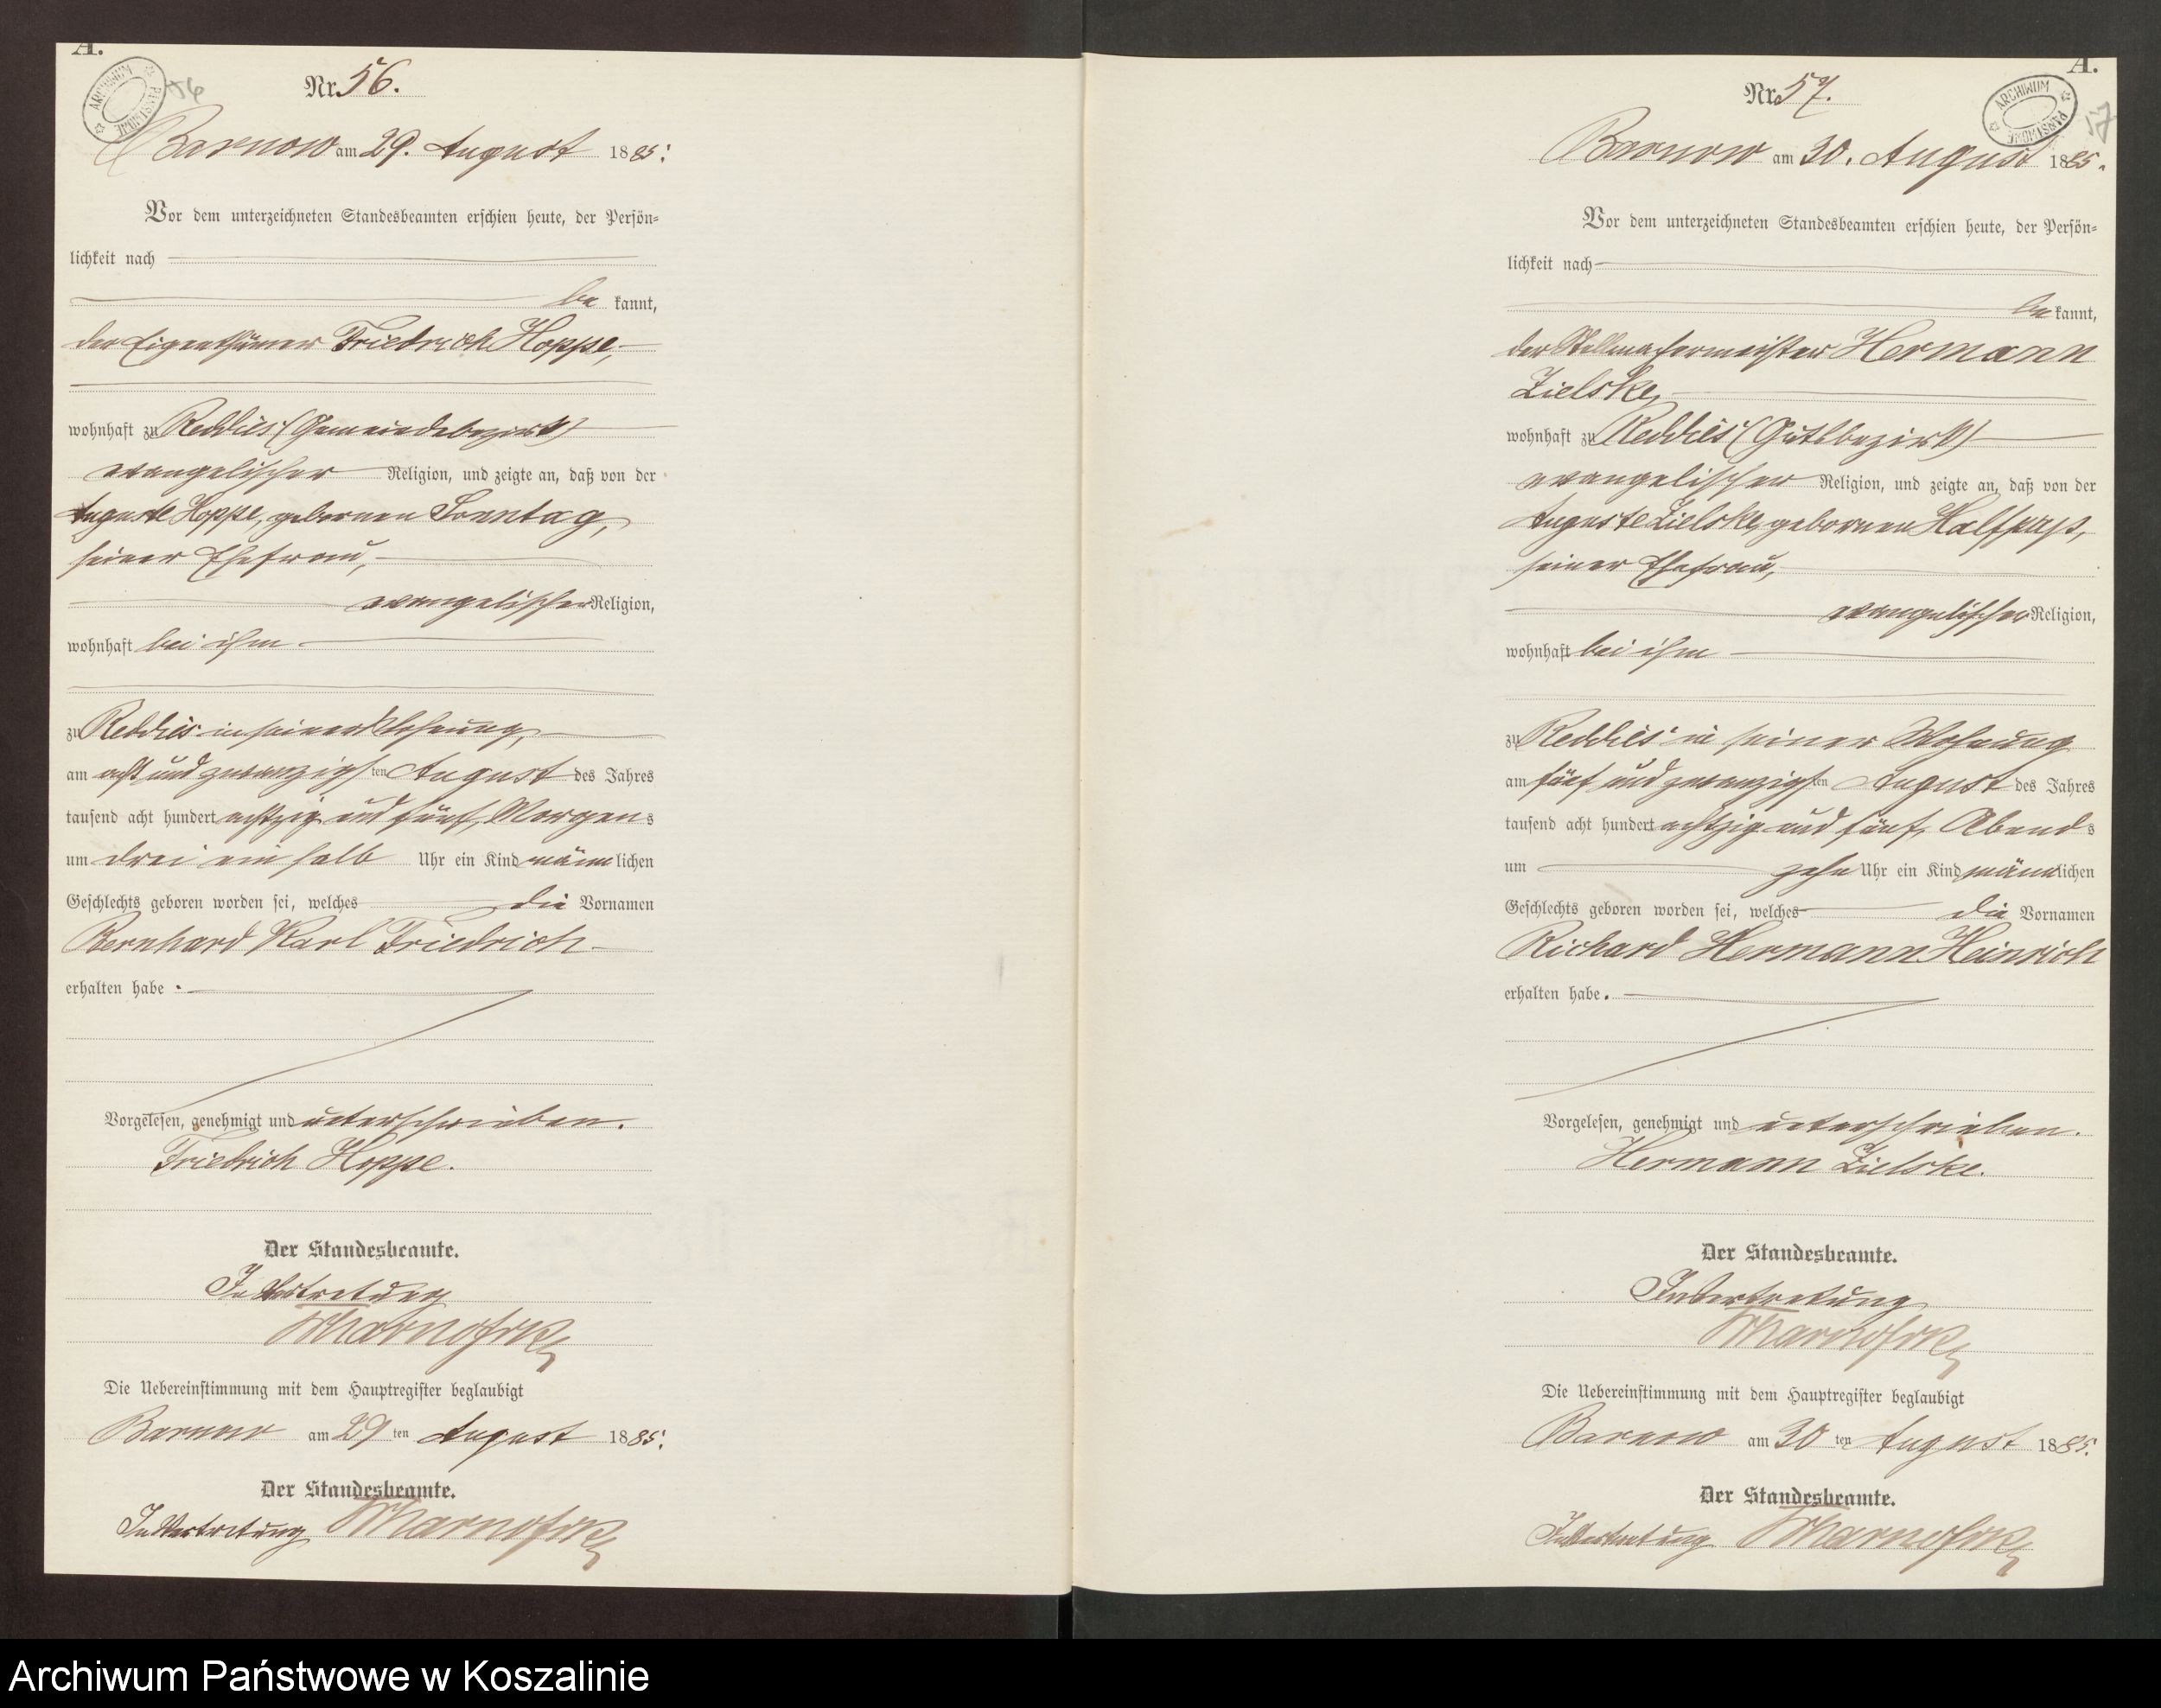 A.
ARCHIWUM PAŃSTWOWE
56
Nr. 56.
Barnow am 29. August 1885.
Vor dem unterzeichneten Standesbeamten erschien heute, der Persön-
lichkeit nach
be kannt,
der Eigenthümer Friedrich Hoppe,
wohnhaft zu Reddies (Gemeindebezirk)
evangelischer Religion, und zeigte an, daß von der
Auguste Hoppe, geborenen Sonntag,
seiner Ehefrau,
evangelischer Religion,
wohnhaft bei ihm
zu Reddies in seiner Wohnung,
am acht und zwanzigsten August des Jahres
tausend acht hundert achtzig und fünf, Morgens
um drei ein halb Uhr ein Kind männlichen
Geschlechts geboren worden sei, welches die Vornamen
Bernhard Karl Friedrich
erhalten habe.
Vorgelesen, genehmigt und unterschrieben.
Friedrich Hoppe.
Der Standesbeamte.
In Vertretung
Die Uebereinstimmung mit dem Hauptregister beglaubigt
Barnow am 29 ten August 1885.
Der Standesbeamte.
In Vertretung
A.
ARCHIWUM PAŃSTWOWE
57
Nr. 57.
Barnow am 30. August 1885.
Vor dem unterzeichneten Standesbeamten erschien heute, der Persön-
lichkeit nach
be kannt,
der Stellmachermeister Hermann
Zielske,
wohnhaft zu Reddies (Gutsbezirk)
evangelischer Religion, und zeigte an, daß von der
Auguste Zielske, geborenen Halfpap,
seiner Ehefrau,
evangelischer Religion,
wohnhaft bei ihm
zu Reddies in seiner Wohnung
am fünf und zwanzigsten August des Jahres
tausend acht hundert achtzig und fünf, Abends
um zehn Uhr ein Kind männlichen
Geschlechts geboren worden sei, welches die Vornamen
Richard Hermann Heinrich
erhalten habe.
Vorgelesen, genehmigt und unterschrieben.
Hermann Zielske.
Der Standesbeamte.
In Vertretung
Die Uebereinstimmung mit dem Hauptregister beglaubigt
Barnow am 30 ten August 1885.
Der Standesbeamte.
In Vertretung
Archiwum Państwowe w Koszalinie